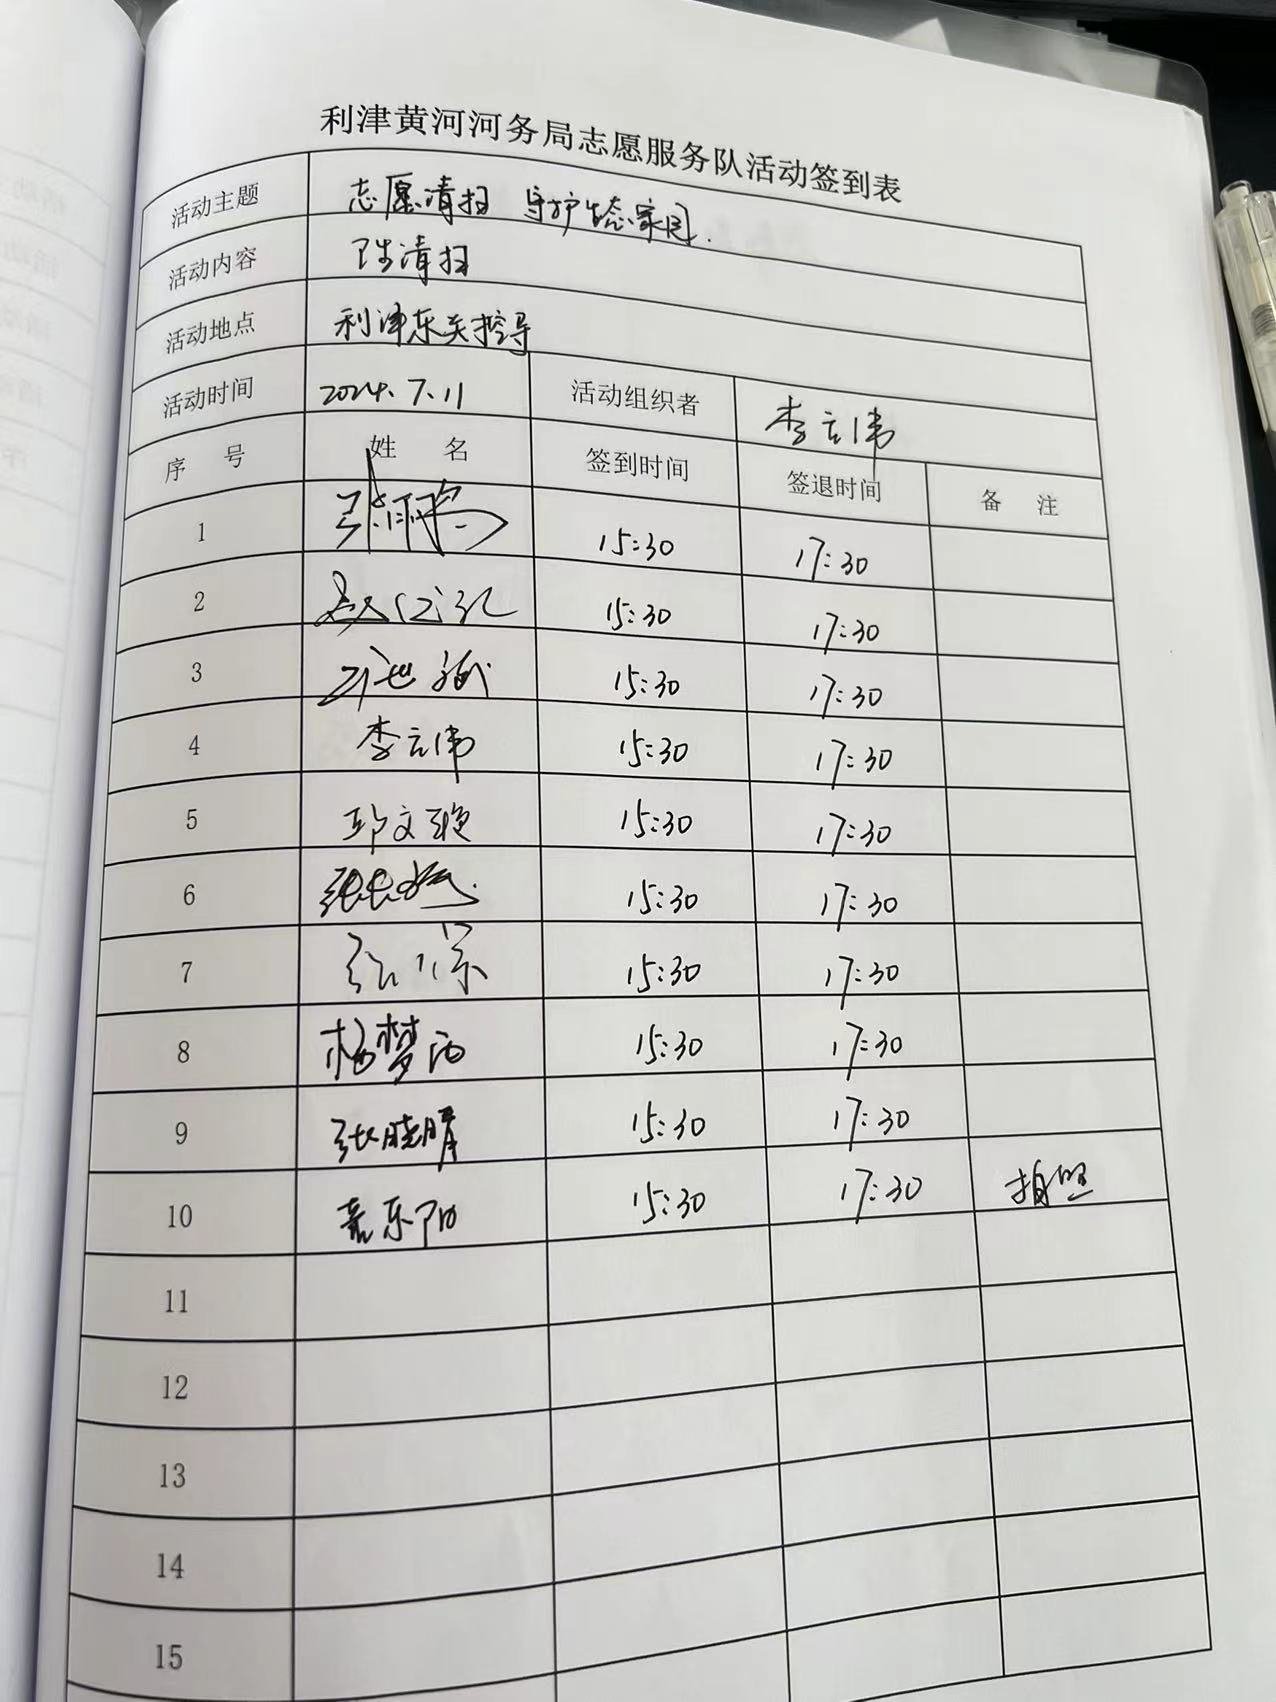 利津黄河河务局志愿服务队活动签到表
活动主题 志愿清扫 守护生态家园.
活动内容 卫生清扫
活动地点 利津东关控导
活动时间 2024.7.11 活动组织者 李立伟
序 号 姓 名 签到时间 签退时间 备 注
1 15:30 17:30
2 15:30 17:30
3 15:30 17:30
4 李立伟 15:30 17:30
5 邱文璇 15:30 17:30
6 15:30 17:30
7 15:30 17:30
8 杨梦雨 15:30 17:30
9 张晓晴 15:30 17:30
10 乐阳 15:30 17:30 拍照
11
12
13
14
15